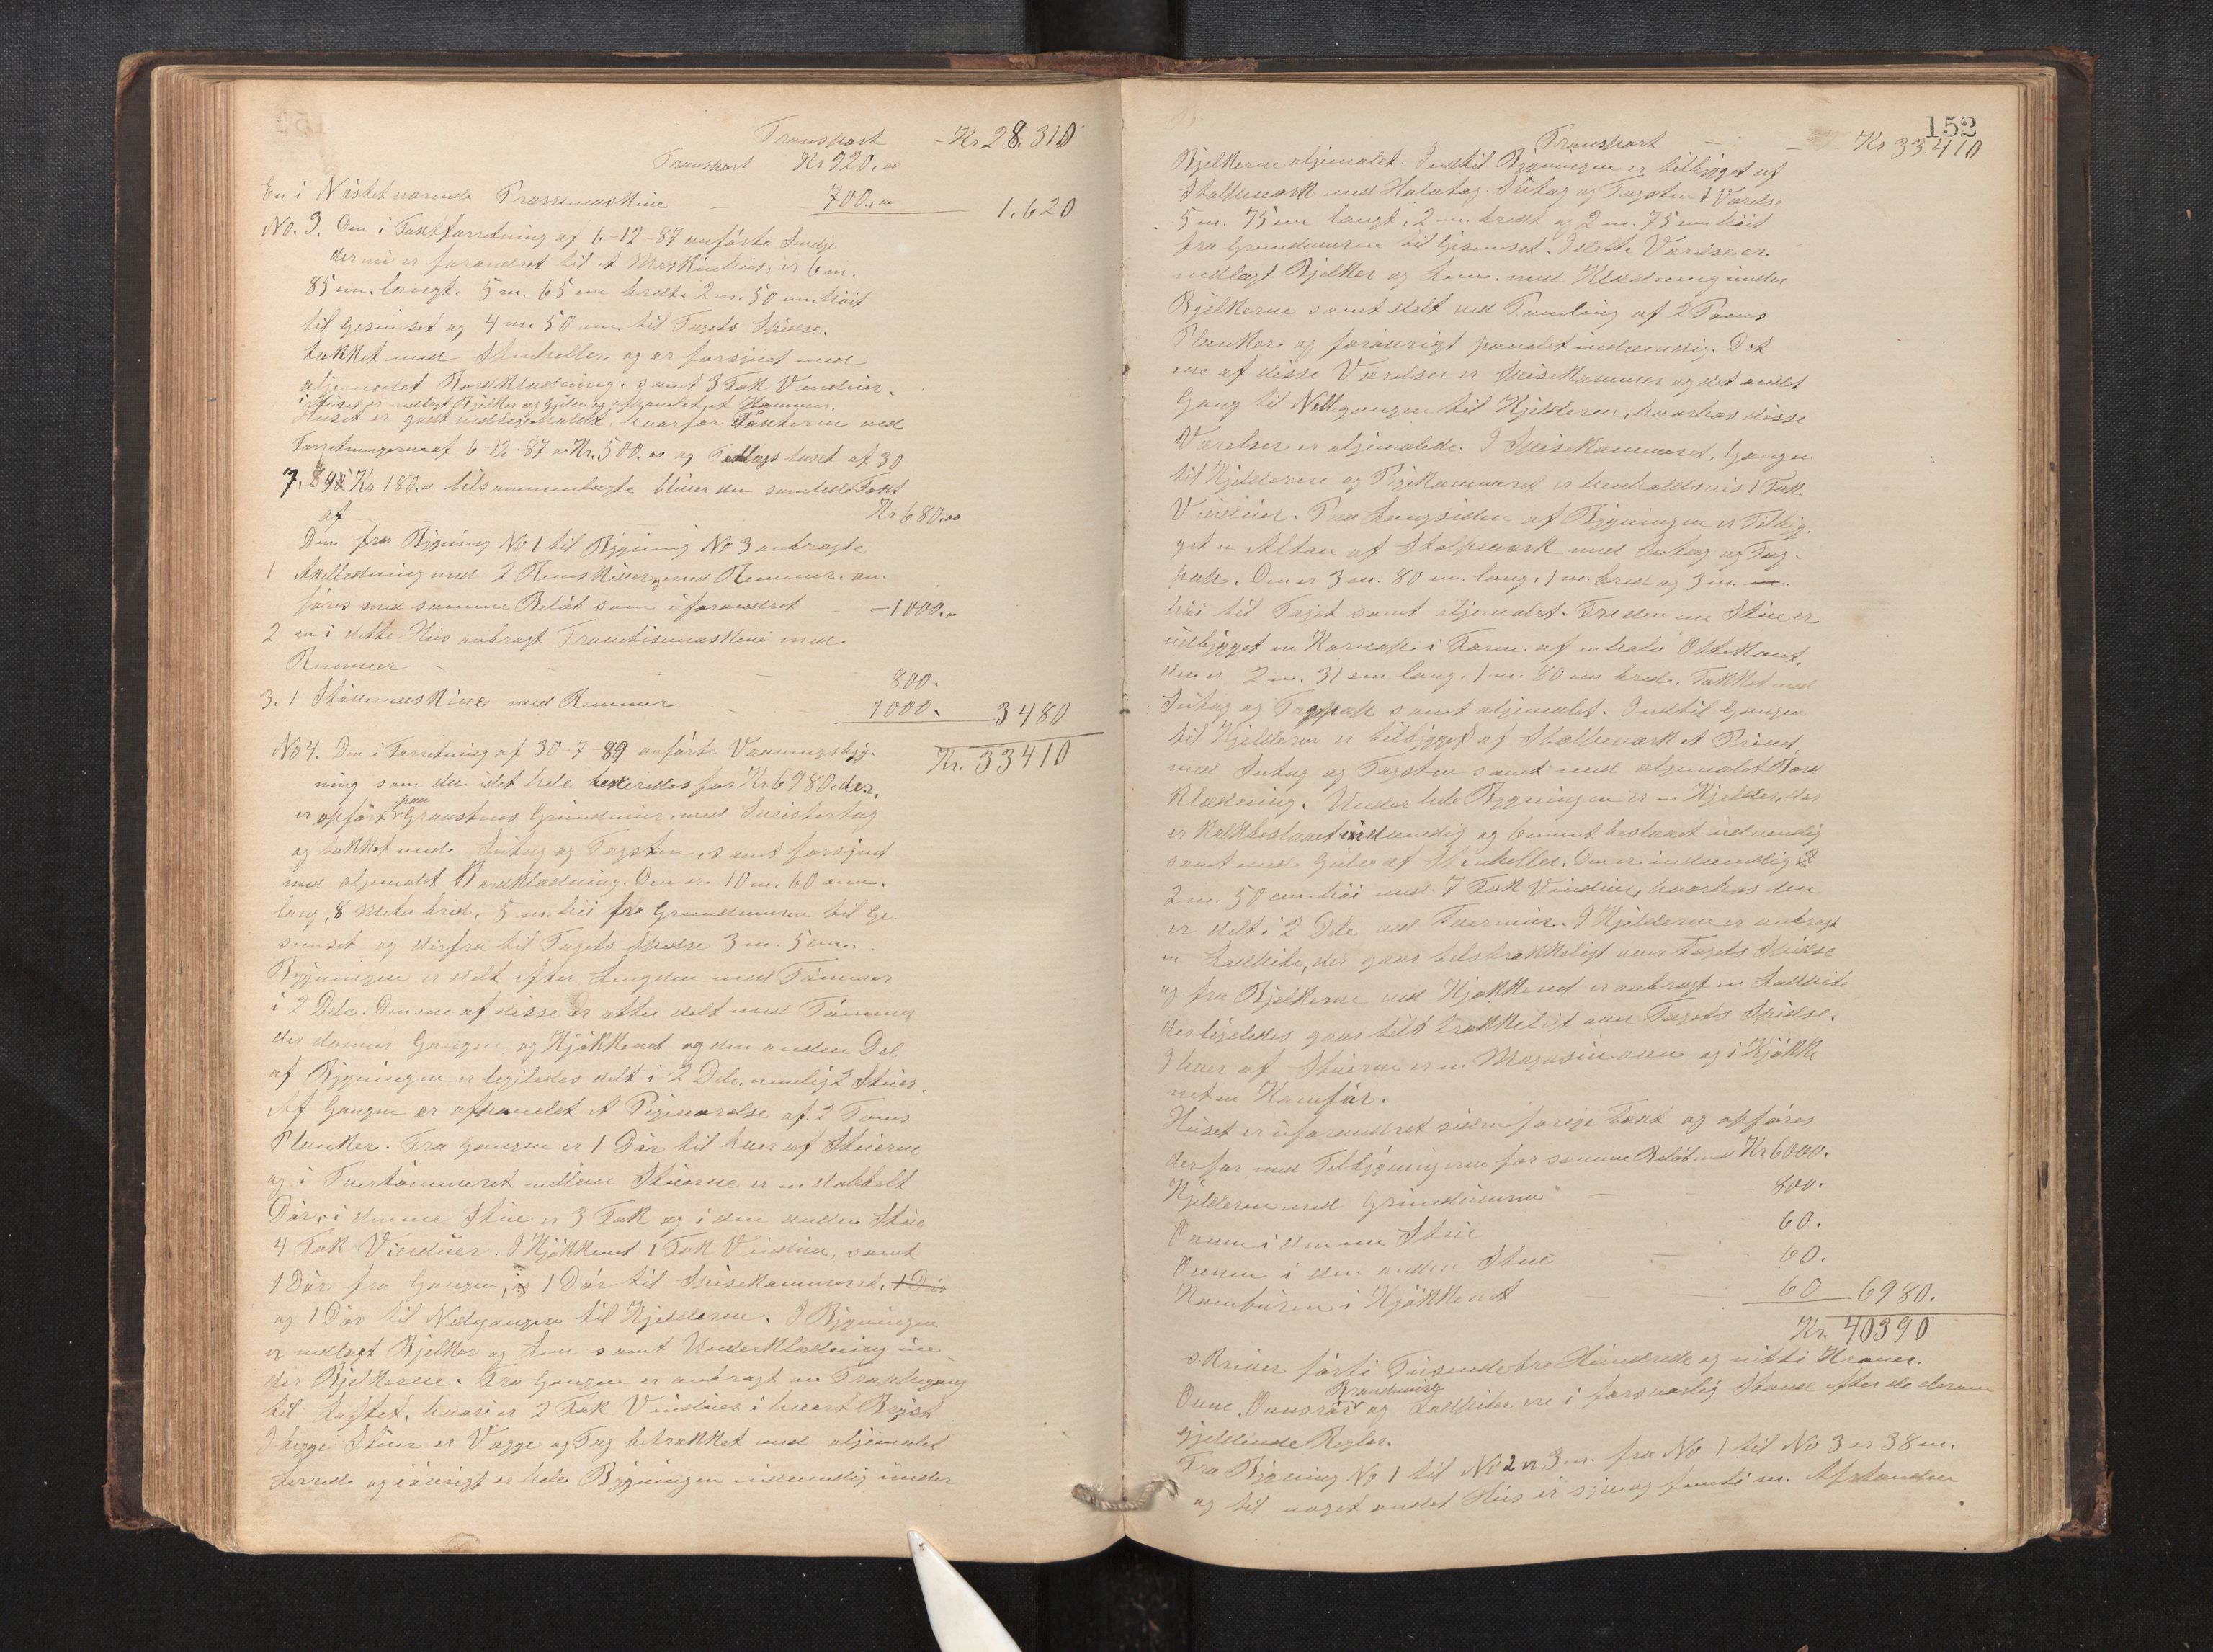 Transport - Kr 28.310
Transport Kr 920.00
En i Nästet værende Pressemaskine - 700.00 1.620
No. 3. Den i Taxtforretning af 6-12-87 anførte Smedje
der nu er forandret til et Maskinhus, er 6 m.
85 cm. langt. 5 m. 65 cm bredt. 2 m. 50 cm. høit
til Gesimset og 4 m. 50 cm. til Tagets Spidse.
tækket med Stenheller og er forsynet med
oljemalet Bordklædning. samt 3 Fak Vinduer.
i Huset er indlagt Bjelker og Gulv og afpanelet et Kammer.
Huset er godt vedligeholdt, hvorfor Taxterne ved
Forretningerne af 6-12-87 Kr. 500.00 og Tillægs taxt af 30
7. 89 Kr 180.00 tilsammenlagte bliver den samlede Taxt
af Kr 680.00
Den fra Bygning No 1 til Bygning No 3 anbragte
1 Axelledning med 2 Remskiver og med Remmer. an-
føres med samme Beløb som uforandret - 1000.00
2 en i dette Hus anbragt Trambismaskine med
Remmer - - - 800.
3. 1 Støvemaskine med Remmer - 1000. 3480
No 4. Den i Forretning af 30-7-89 anførte Vaaningsbyg- Kr. 33410
ning som da i det hele taxeredes for Kr 6980. der,
er opført paa Graastens Grundmur, med Sperretag
og tækket med Sutag og Tagsten, samt forsynet
med oljemalet Bordklædning. Den er 10 m. 60 cm.
lang, 8 Meter bred, 5 m. høi fra Grundmuren til Ge-
simset og derfra til Tagets Spidse 3 m. 5 cm.
Bygningen er delt efter Længden med Tømmer
i 2 Dele. Den ene af disse er atter delt med Tømmer
der danner Gangen og Kjøkkenet og den anden Del
af Bygningen er ligeledes delt i 2 Dele, nemlig 2 Stuer.
Af Gangen er afpanelet et Pigeværelse af 2 Toms
Planker. Fra Gangen er 1 Dør til hver af Stuerne
og i Tvertømmeret mellem Stuerne er en dobbelt
Dør, i den ene Stue er 3 Fak og i den anden Stue
4 Fak Vinduer. I Kjøkkenet 1 Fak Vindue, samt
1 Dør fra Gangen, 1 Dør til Spisekammeret, 1 Dør
og 1 Dør til Nedgangen til Kjelderen. I Bygningen
er indlagt Bjelker og Lem samt Underklædning un-
der Bjelkerne. Fra Gangen er anbragt en Trappegang
til Loftet, hvori er 2 Fak Vinduer i hvert Bryst
I begge Stuer er Vægge og Tag betrækket med oljemalet
Lerred og iøvrigt er hele Bygningen indvendig under
152
Transport - - Kr 33.410
Bjelkerne oljemalet. Indtil Bygningen er tilbygget af
Stolpeværk med Halvtag. Sutag og Tagsten 1 Værelse
5 m. 75 cm langt, 2 m. bredt og 2 m. 75 cm høit
fra Grundmuren til Gesimset. I dette Værelse er
indlagt Bjelker og Lem. med Klædning under
Bjelkerne samt delt ved Paneling af 2 Toms
Planker og forøvrigt panelet indvendig. Det
ene af disse Værelser er Spisekammer og det andet
Gang til Nedgangen til Kjelderen, hvorhos disse
Værelser er oljemalede. I Spisekammeret, Gangen
til Kjelderen og Pigekammeret er henholdsvis 1 Fak
Vinduer. Paa Langsiden af Bygningen er Tilbyg-
get en Altan af Stolpeværk med Sutag og Tag-
pap. Den er 3 m. 80 cm. lang, 1 m. bred og 3 m.
høi til Taget samt oljemalet. Fra den ene Stue er
udbygget en Karnap i Form af en halv Ottekant,
den er 2 m. 31 cm lang. 1 m. 80 cm bred. Tækket med
Sutag og Tagpap samt oljemalet. Indtil Gangen
til Kjelderen er tilbygget af Stolpeværk et Privet,
med Sutag og Tagsten samt med oljemalet Bord
klædning. Under hele Bygningen er en Kjelder, der
er kalkbeslaaet indvendig og Cement beslaaet udvendig
samt med Gulv af Stenheller. Den er indvendig
2 m. 50 cm høi med 7 Fak Vinduer, hvorhos den
er delt i 2 Dele ved Tvermur. I Kjelderen er anbragt
en Ladpibe, der gaar tilstrækkeligt over Tagets Spidse
og fra Bjelkerne ved Kjøkkenet er anbragt en Ladpibe
der ligeledes gaar tilstrækkeligt over Tagets Spidse.
I hver af Stuerne er en Magasin ovn og i Kjøkke
net en Komfur.
Huset er uforandret siden forrige Taxt og opføres
derfor med Tilbygningerne for samme Beløb med Kr 6000.
Kjelderen med Grundmuren - - 800.
Ovnen i den ene Stue 60.
Ovnen i den anden Stue - - 60.
Komfuren i Kjøkkenet - - 60 6980.
Kr. 40390
skriver førti Tusende tre Hundrede og nitti Kroner.
Ovne, Ovnsrør Brandmure og Ladpiber ere i forsvarlig Stand efter de derom
gjeldende Regler.
Fra Bygning No 1 til No 2 er 3 m. fra No 1 til No 3 er 38 m.
og til noget andet Hus er syv og femti m. Afstanden